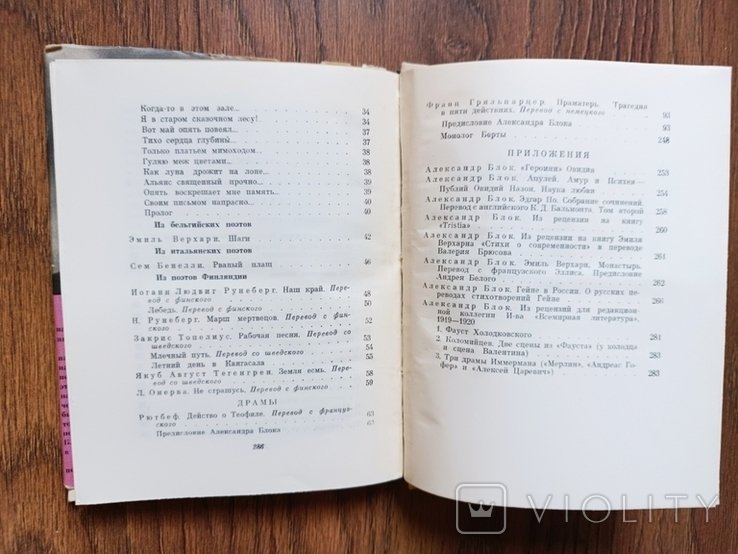 Когда-то в этом зале... 34
Я в старом сказочном лесу! 34
Вот май опять повеял... 37
Тихо сердца глубины́ 37
Только платьем мимоходом... 38
Гуляю меж цветами... 38
Как луна дрожит на лоне... 38
Альянс священный прочно... 39
Опять воскрешает мне память... 39
Своим письмом напрасно... 40
Пролог 40
Из бельгийских поэтов
Эмиль Верхарн. Шаги 42
Из итальянских поэтов
Сем Бенелли. Рваный плащ 46
Из поэтов Финляндии
Иоганн Людвиг Рунеберг. Наш край. Пере-
вод с финского 48
Лебедь. Перевод с финского 50
И. Рунеберг. Марш мертвецов. Перевод с фин-
ского 52
Закрис Топелиус. Рабочая песня. Перевод со
шведского 53
Млечный путь. Перевод со шведского 54
Летний день в Кангасала 55
Якуб Август Тегенгрен. Земля есмь. Перевод
со шведского 58
Л. Онерва. Не страшусь. Перевод с финского 59
ДРАМЫ
Рютбеф. Действо о Теофиле. Перевод с француз-
ского 63
Предисловие Александра Блока 63
286
Франц Грильпарцер. Праматерь. Трагедия
в пяти действиях. Перевод с немецкого 93
Предисловие Александра Блока 93
Монолог Берты 248
ПРИЛОЖЕНИЯ
Александр Блок. «Героини» Овидия 253
Александр Блок. Апулей. Амур и Психея—
Публий Овидий Назон. Наука любви 254
Александр Блок. Эдгар По. Собрание сочинений.
Перевод с английского К. Д. Бальмонта. Том второй 258
Александр Блок. Из рецензии на книгу
«Tristia» 260
Александр Блок. Из рецензии на книгу Эмиля
Верхарна «Стихи о современности» в переводе
Валерия Брюсова 261
Александр Блок. Эмиль Верхарн. Монастырь.
Перевод с французского Эллиса. Предисловие
Андрея Белого 262
Александр Блок. Гейне в России. О русских пе-
реводах стихотворений Гейне 265
Александр Блок. Из рецензий для редакцион-
ной коллегии И-ва «Всемирная литература».
1919—1920
1. Фауст Холодковского 281
2. Коломийцев. Две сцены из «Фауста» (у колодца
и сцена Валентина) 283
3. Три драмы Иммермана («Мерлин», «Андреас Го-
фер» и «Алексей Царевич») 283
VIOLITY